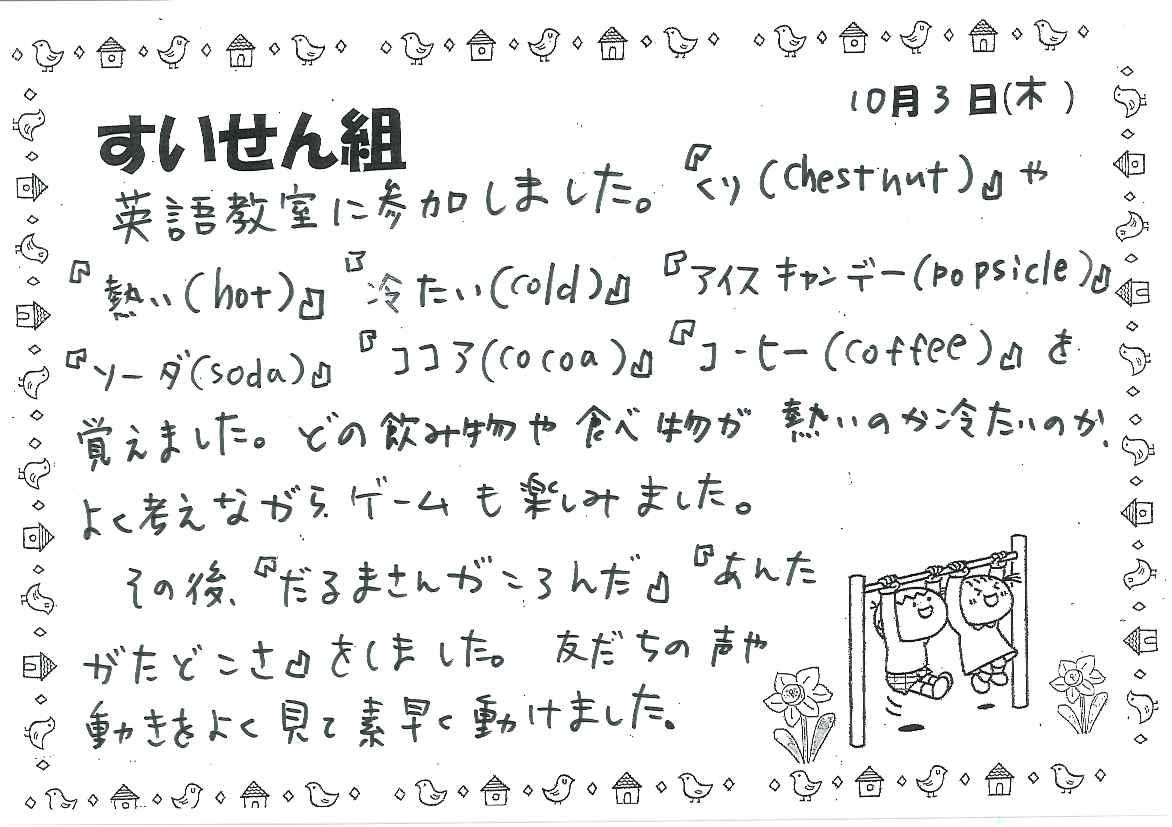 10月3日(木)
すいせん組
英語教室に参加しました。『くり(chestnut)』や
『熱い(hot)』『冷たい(cold)』『アイスキャンデー(popsicle)』
『ソーダ(soda)』『ココア(cocoa)』『コーヒー(coffee)』を
覚えました。どの飲み物や食べ物が熱いのか冷たいのか、
よく考えながらゲームも楽しみました。
その後、『だるまさんがころんだ』『あんた
がたどこさ』をしました。友だちの声や
動きをよく見て素早く動けました。